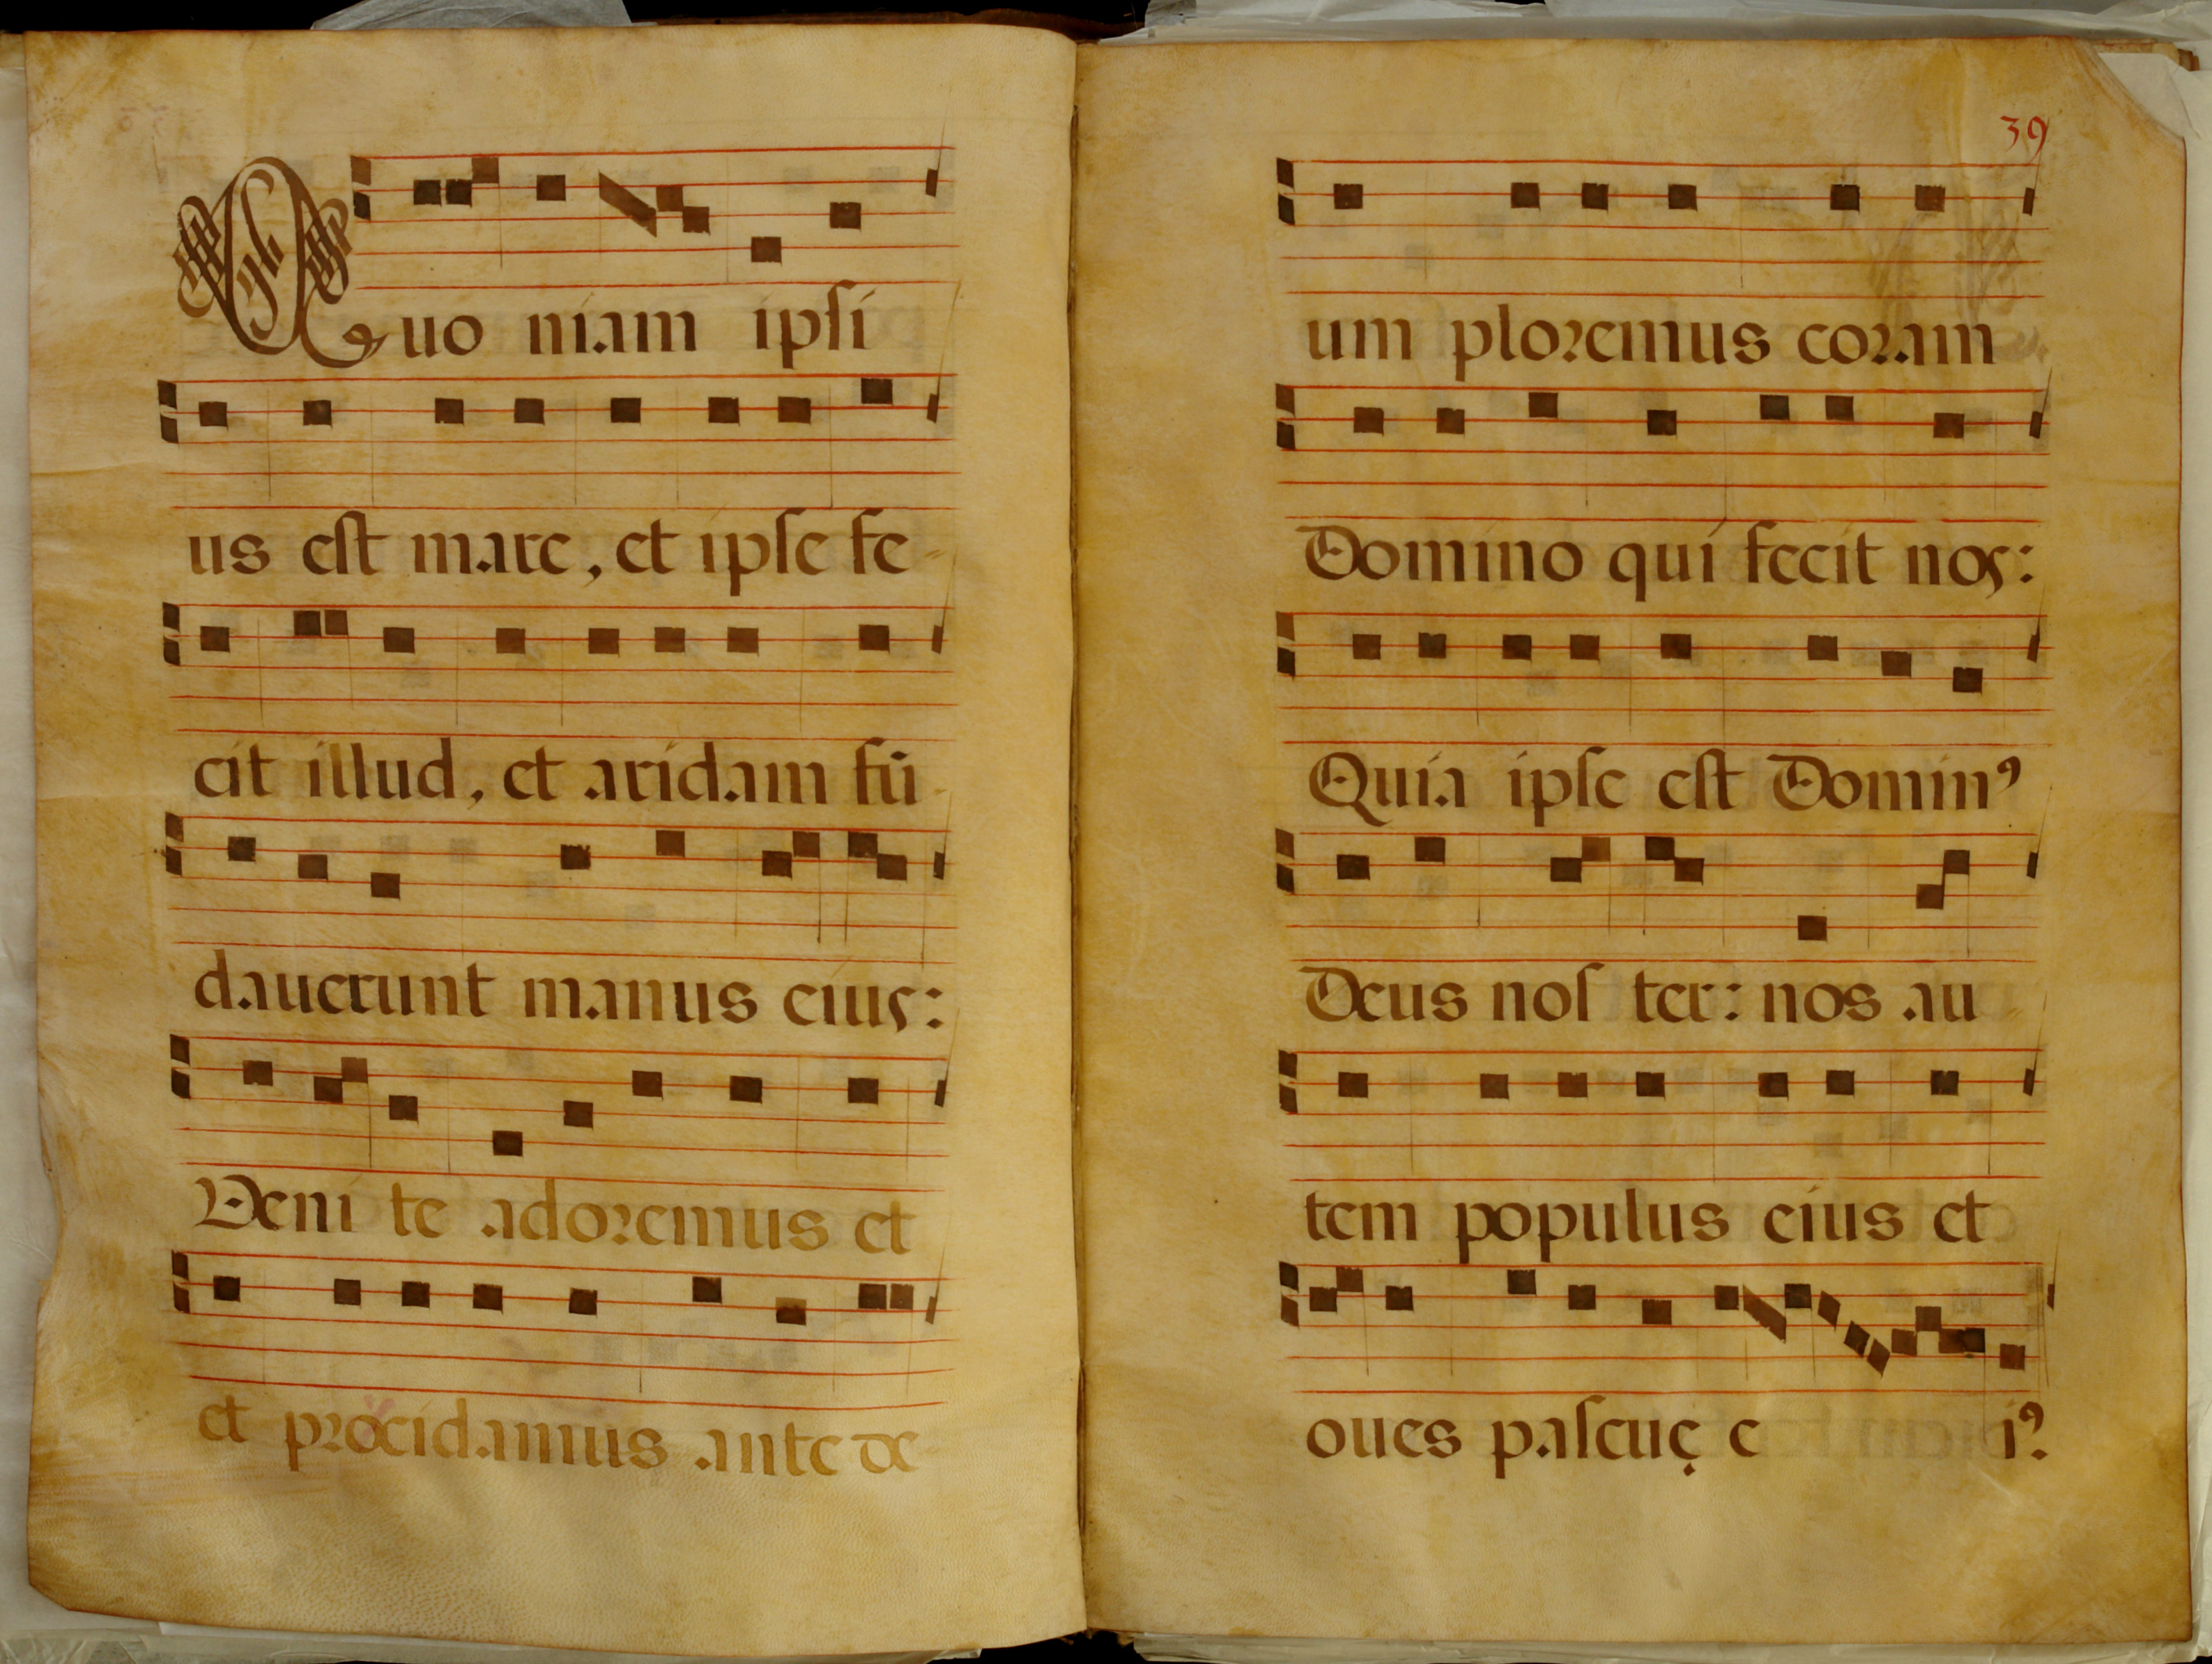 Quo niam ipsi
us est mare, et ipse fe-
cit illud, et aridam fũ-
dauerunt manus eius:
Veni te adoremus et
et procidamus ante de
39
um ploremus coram
Domino qui fecit nos:
Quia ipse est Dominꝰ
Deus nos ter: nos au-
tem populus eius et
oues pascuę e iꝰ.